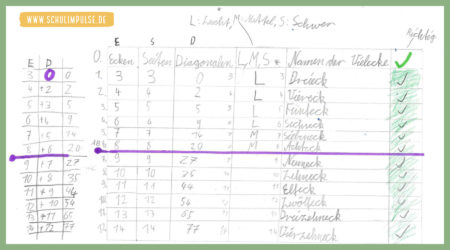 WWW.SCHULIMPULSE.DE
L: Leicht, M: Mittel, S: Schwer
Richtig
E D
3 0 0
4 +2 2
5 +3 5
6 +4 9
7 +5 14
8 +6 20
9 +7 27
10 +8 35
11 +9 44
12 +10 54
13 +11 65
14 +12 77
E S D
0. Ecken Seiten Diagonalen L, M, S Namen der Vielecke ✓
1. 3 3 0 L Dreieck ✓
2. 4 4 2 L Viereck ✓
3. 5 5 5 L Fünfeck ✓
4. 6 6 9 L Sechseck ✓
5. 7 7 14 M Siebeneck ✓
6. 8 8 20 M Achteck ✓
9 9 27 Neuneck ✓
10 10 35 Zehneck ✓
11 11 44 Elfeck ✓
12 12 54 Zwölfeck ✓
13 13 65 Dreizehneck ✓
14 14 77 Vierzehneck ✓